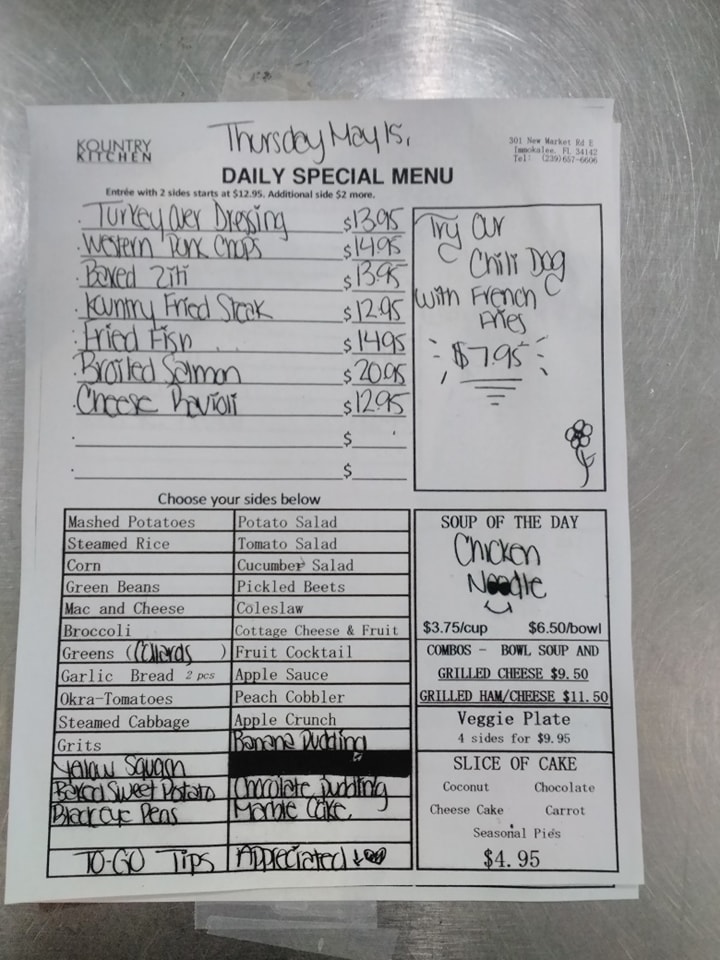 KOUNTRY
KITCHEN
Thursday May 15,
301 New Market Rd E
Immokalee, FL 34142
Tel: (239)657-6606
DAILY SPECIAL MENU
Entrée with 2 sides starts at $12.95. Additional side $2 more.
Turkey Over Dressing $13.95
Western Pork Chops $14.95
Baked Ziti $13.95
Kuntry Fried Steak $12.95
Fried Fish $14.95
Broiled Salmon $20.95
Cheese Ravioli $12.95
$
$
Try Our
Chili Dog
With French
Fries
$7.95
Choose your sides below
Mashed Potatoes Potato Salad
Steamed Rice Tomato Salad
Corn Cucumber Salad
Green Beans Pickled Beets
Mac and Cheese Coleslaw
Broccoli Cottage Cheese & Fruit
Greens (Collards) Fruit Cocktail
Garlic Bread 2 pcs Apple Sauce
Okra-Tomatoes Peach Cobbler
Steamed Cabbage Apple Crunch
Grits Banana Pudding
Yellow Squash
Baked Sweet Potato Chocolate Pudding
Black eye Peas Marble Cake.
TO-GO Tips Appreciated
SOUP OF THE DAY
Chicken
Noodle
$3.75/cup $6.50/bowl
COMBOS - BOWL SOUP AND
GRILLED CHEESE $9.50
GRILLED HAM/CHEESE $11.50
Veggie Plate
4 sides for $9.95
SLICE OF CAKE
Coconut Chocolate
Cheese Cake Carrot
Seasonal Pies
$4.95